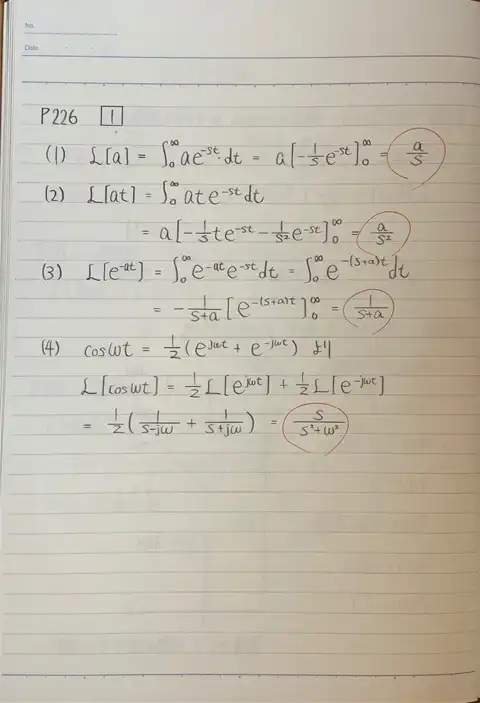 No.
Date
P226 1
(1) L[a] = ∫₀^∞ ae^{-st}・dt = a[-1/s e^{-st}]₀^∞ = a/s
(2) L[at] = ∫₀^∞ at e^{-st}dt
= a[-1/s te^{-st} - 1/s² e^{-st}]₀^∞ = a/s²
(3) L[e^{-at}] = ∫₀^∞ e^{-at}e^{-st}dt = ∫₀^∞ e^{-(s+a)t}dt
= -1/(s+a) [e^{-(s+a)t}]₀^∞ = 1/(s+a)
(4) cosωt = 1/2(e^{jωt} + e^{-jωt}) より
L[cosωt] = 1/2 L[e^{jωt}] + 1/2 L[e^{-jωt}]
= 1/2(1/(s-jω) + 1/(s+jω)) = s/(s²+ω²)